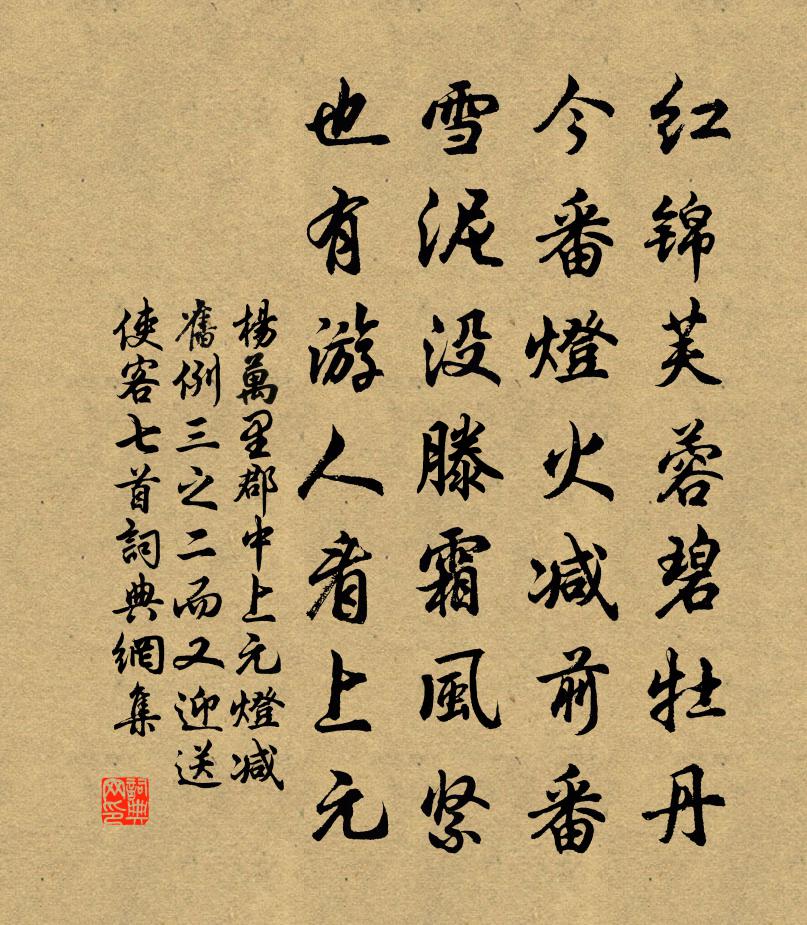 红锦芙蓉碧牡丹
今番燈火减前番
雪泥没膝霜風紧
也有游人看上元
楊萬里郡中上元燈减
舊例三之二而又迎送
使客七首詞典網集
詞典
网印